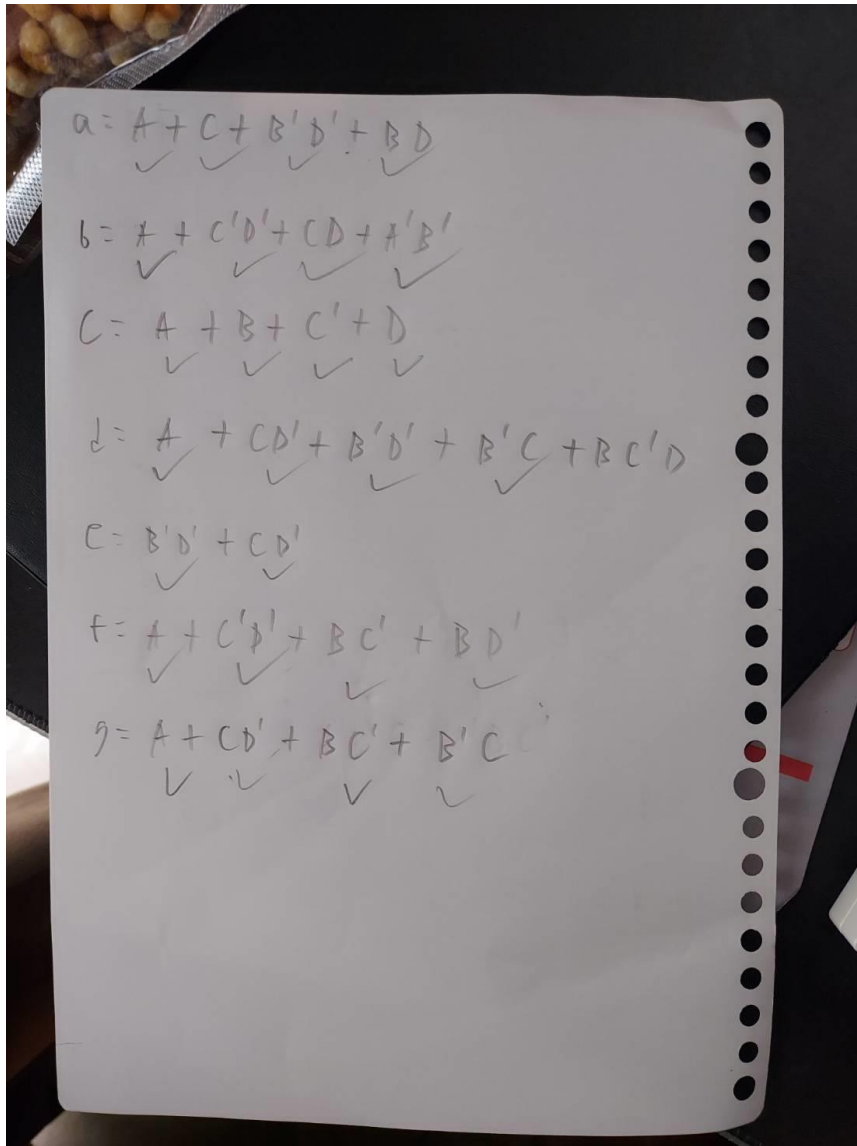 a= A + C + B'D' + BD
b= A + C'D' + CD + A'B'
C= A + B + C' + D
d= A + CD' + B'D' + B'C + BC'D
e= B'D' + CD'
f= A + C'D' + BC' + BD'
g= A + CD' + BC' + B'C